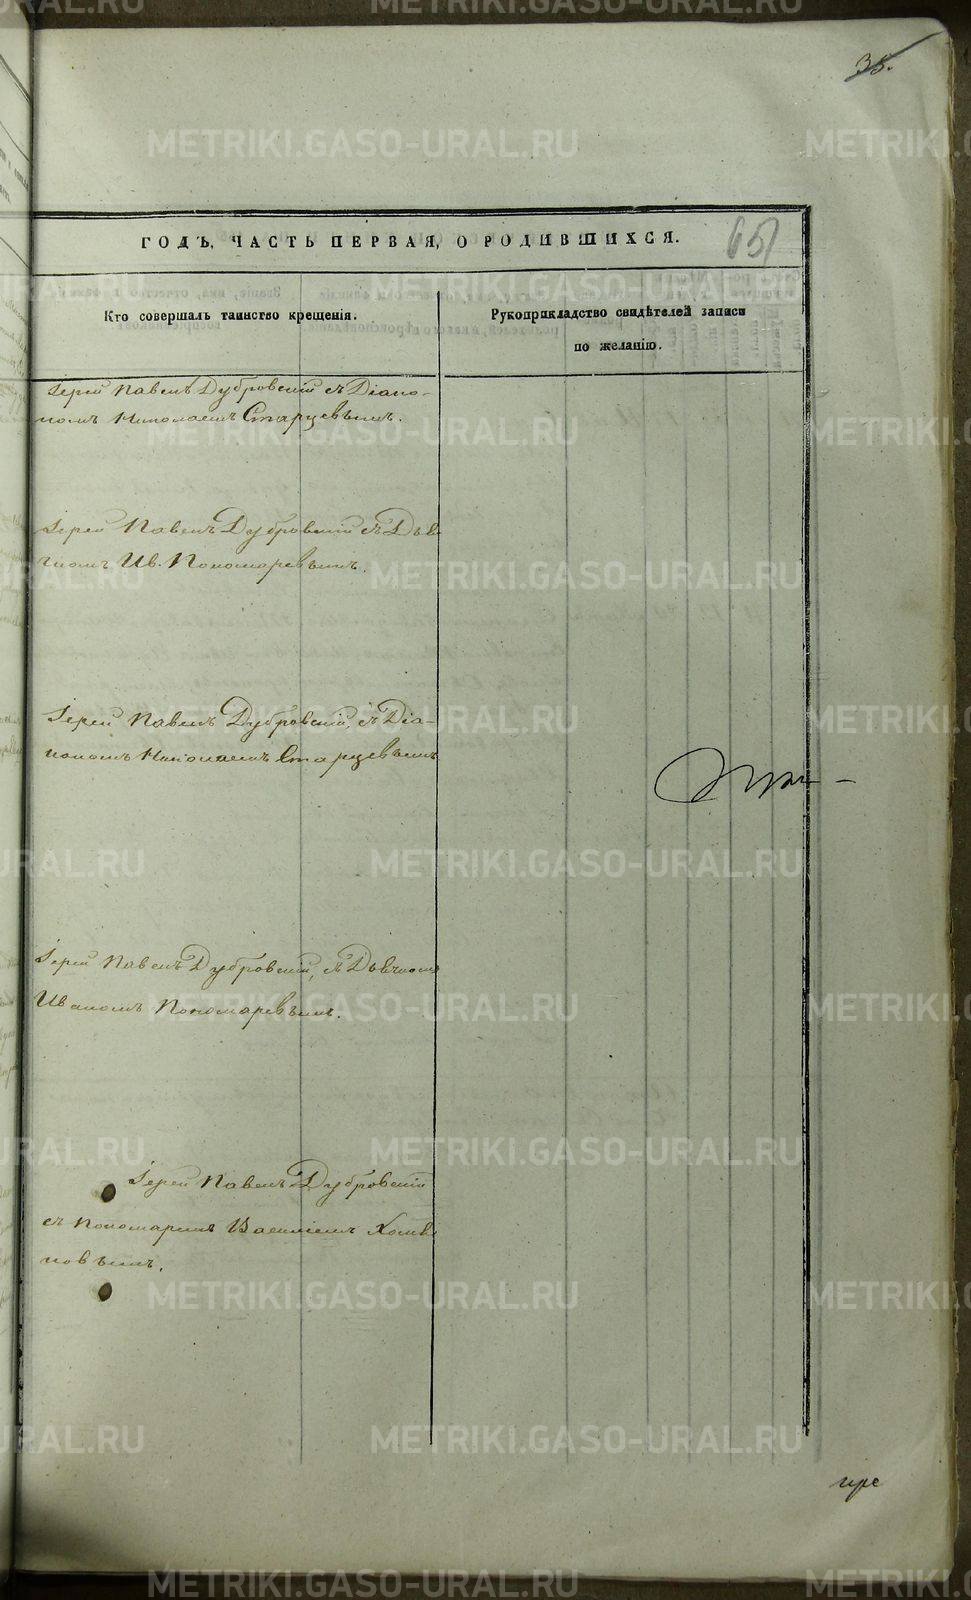 35.
65
ГОДЪ, ЧАСТЬ ПЕРВАЯ, О РОДИВШИХСЯ.
Кто совершалъ таинство крещенія.
Рукоприкладство свидѣтелей записи
по желанію.
Іерей Павелъ Дубровскій съ Діако-
номъ Николаемъ Старцевымъ.
Іерей Павелъ Дубровскій съ Дьяч
комъ Ив. Пономаревымъ.
Іерей Павелъ Дубровскій, съ Діа-
кономъ Николаемъ Старцевымъ
Іерей Павелъ Дубровскій, съ Дьячкомъ
Иваномъ Пономаревымъ.
Іерей Павелъ Дубровскій
съ Пономаремъ Василіемъ Хомя
ковымъ.
METRIKI.GASO-URAL.RU